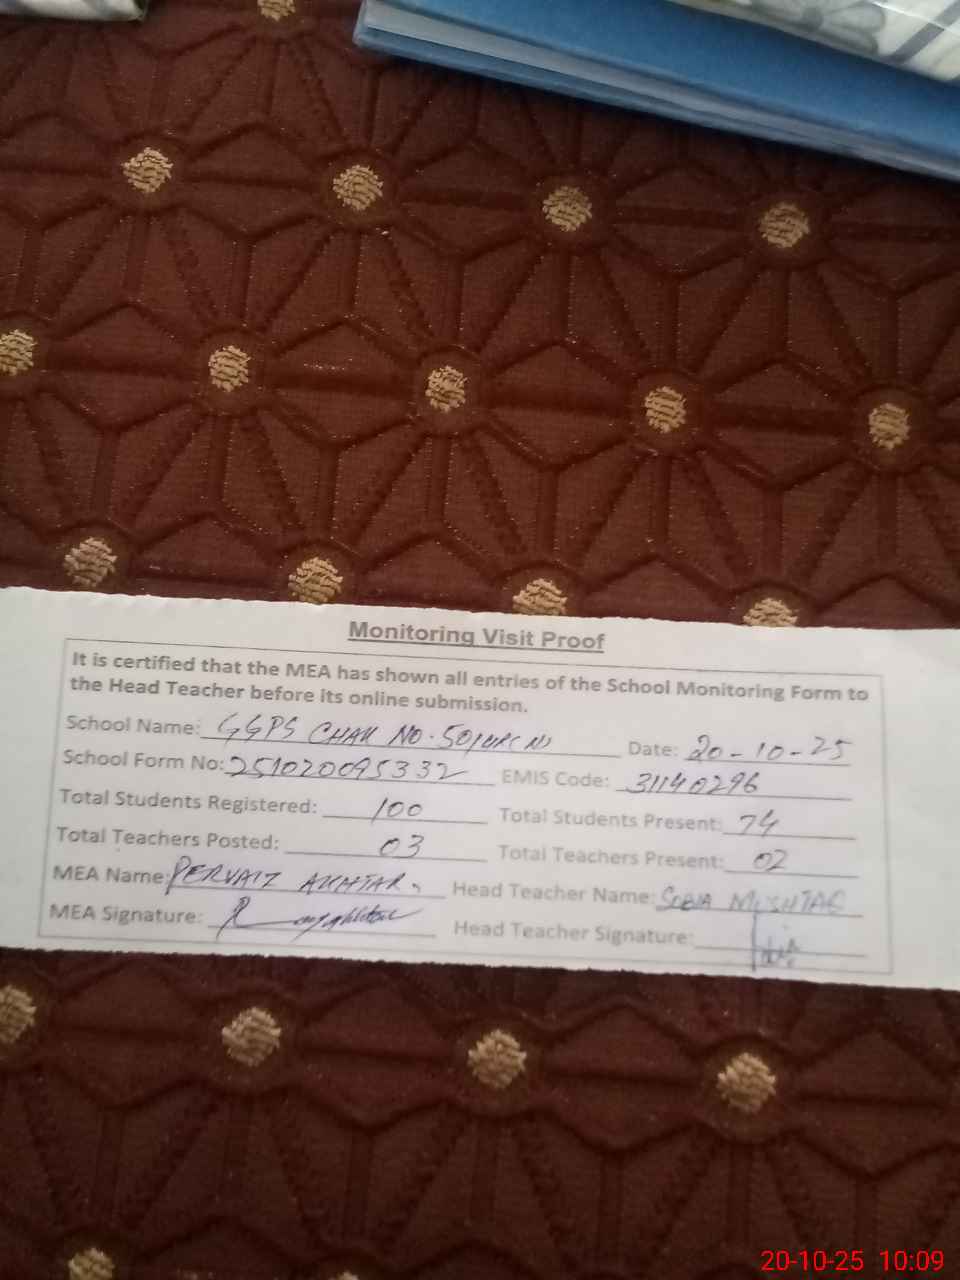 Monitoring Visit Proof
It is certified that the MEA has shown all entries of the School Monitoring Form to
the Head Teacher before its online submission.
School Name: GGPS CHAK NO. Date: 20-10-25
School Form No: 251020095332 EMIS Code: 31140296
Total Students Registered: 100 Total Students Present: 74
Total Teachers Posted: 03 Total Teachers Present: 02
MEA Name: PERVAIZ AKHTAR Head Teacher Name: SOBIA MUSHTAQ
MEA Signature: Head Teacher Signature:
20-10-25 10:09